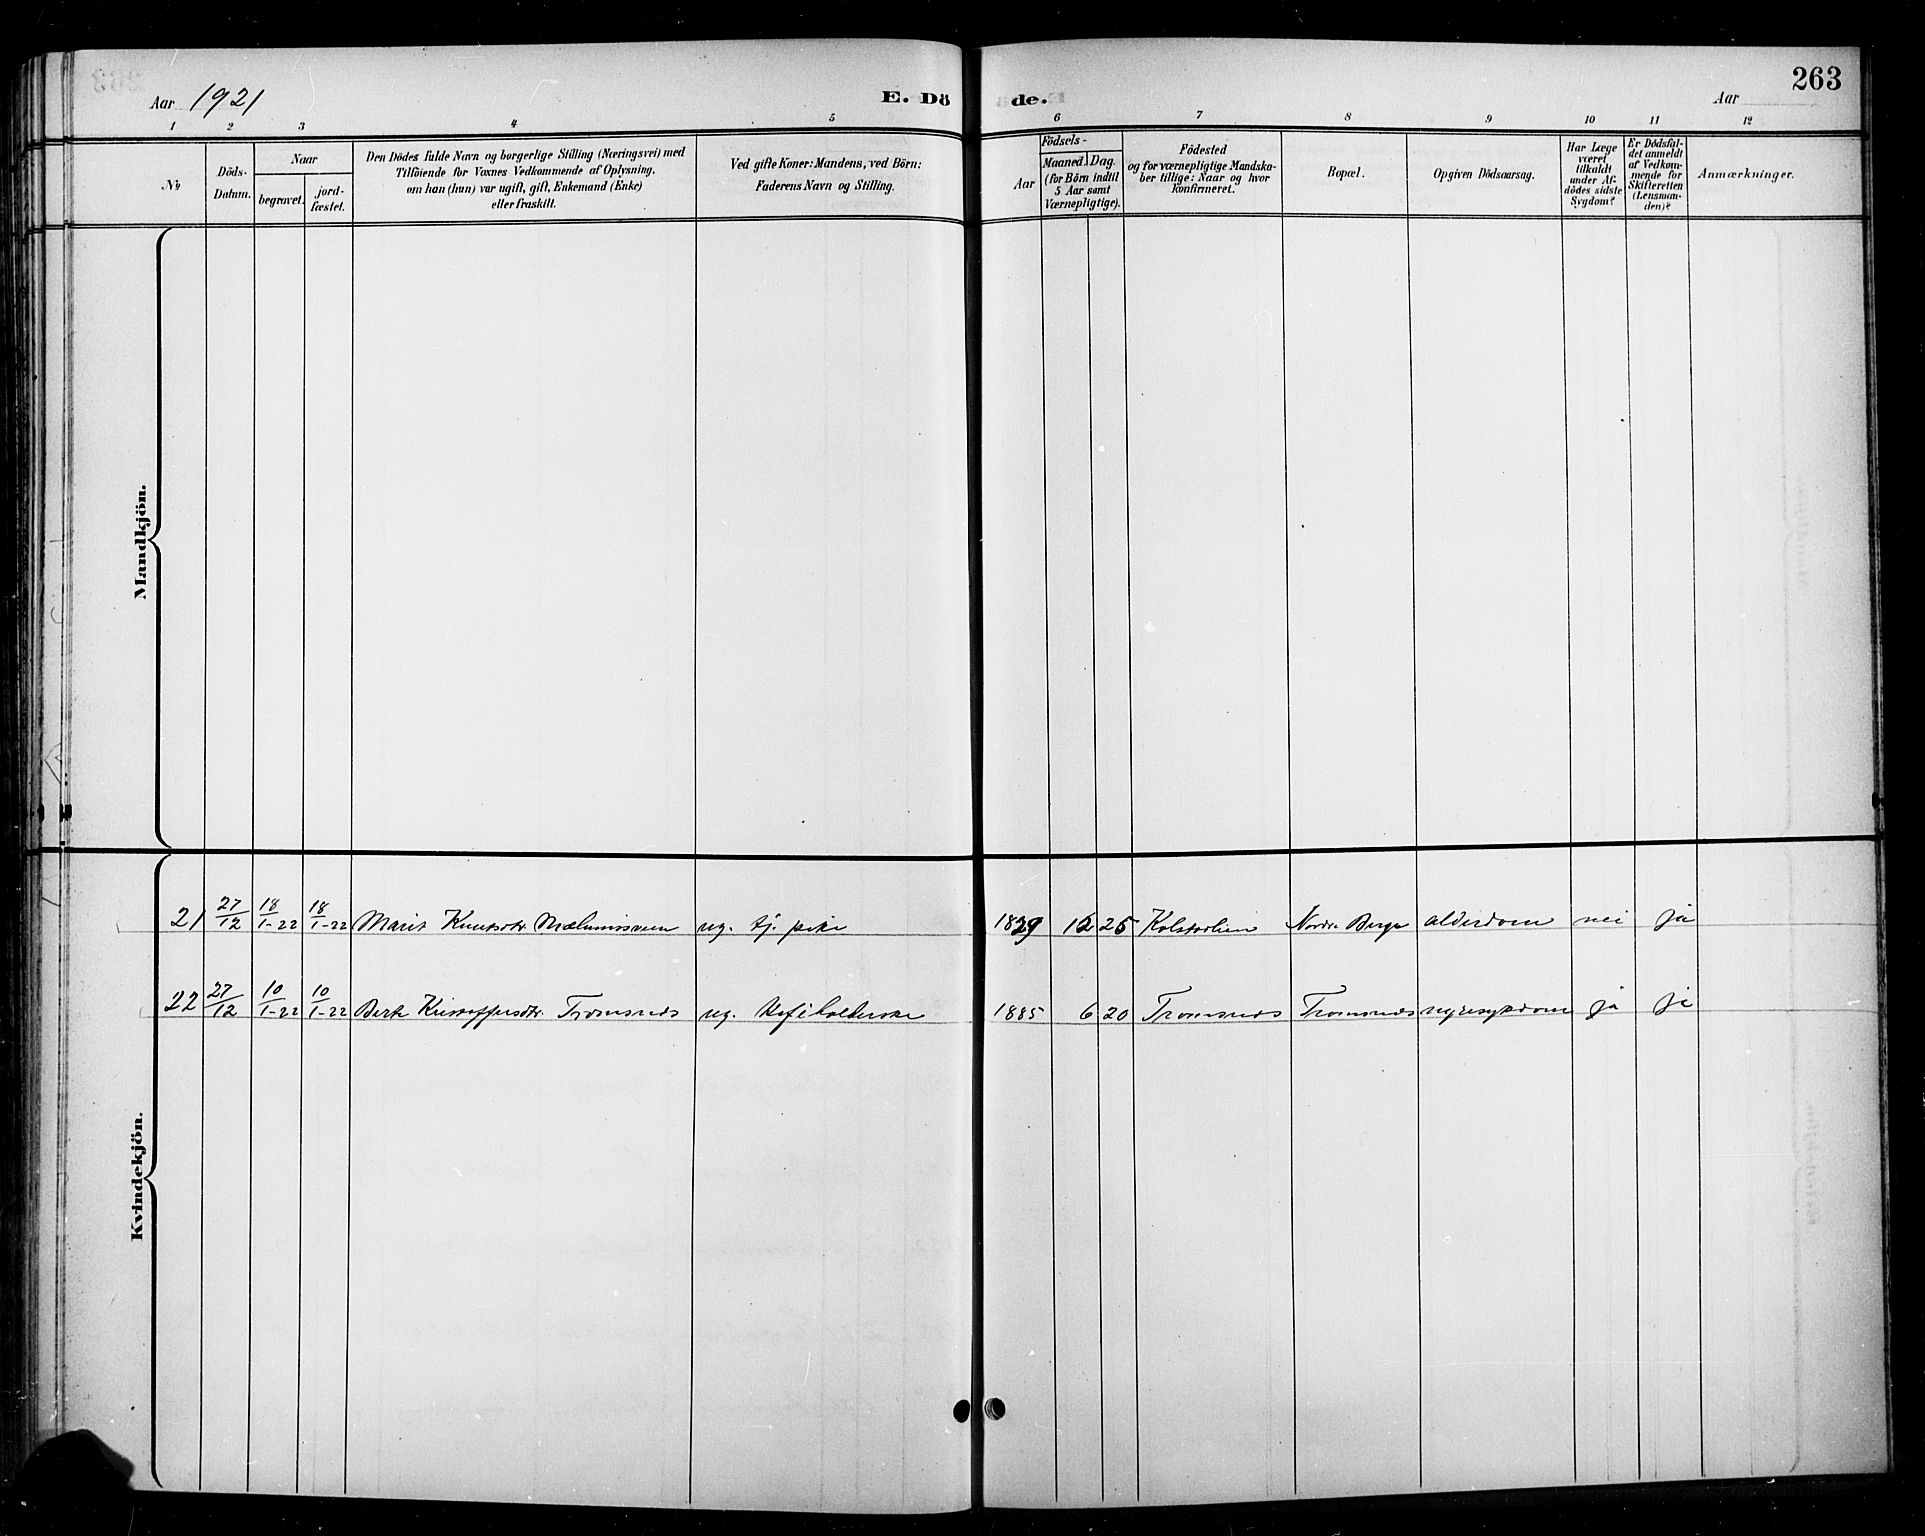 263
Aar 1921
E. Dö
de.
Aar
1 2 3 4 5 6 7 8 9 10 11 12
№
Döds-
Datum.
Naar
begravet.
jord-
fæstet.
Den Dödes fulde Navn og borgerlige Stilling (Næringsvei) med
Tilföiende for Voxnes Vedkommende af Oplysning,
om han (hun) var ugift, gift, Enkemand (Enke)
eller fraskilt.
Ved gifte Koner: Mandens, ved Börn:
Faderens Navn og Stilling.
Födsels-
Aar
Maaned. Dag.
(for Börn indtil
5 Aar samt
Værnepligtige).
Födested
og for værnepligtige Mandska-
ber tillige: Naar og hvor
konfirmeret.
Bopæl.
Opgiven Dödsaarsag.
Har Læge
været
tilkaldt
under Af-
dödes sidste
Sygdom?
Er Dödsfal-
det anmeldt
af Vedkom-
mende for
Skifteretten
(Lensman-
den)?
Anmærkninger.
Mandkjön.
Kvindekjön.
21 27/12 18/1-22 18/1-22 Marit Knutsdtr. ug. tj. pike 1829 12 25 Kolstadlien Nordre Berge alderdom nei ja
22 27/12 10/1-22 10/1-22 Berte Kristoffersdtr. Tromsnes ug. 1885 6 20 Tromsnes Tromsnes nyresygdom ja ja